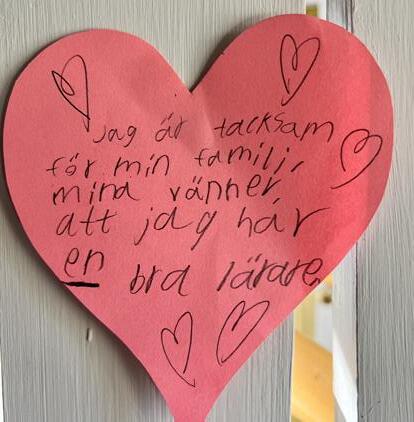 jag är tacksam
för min familj,
mina vänner,
att jag har
en bra lärare,